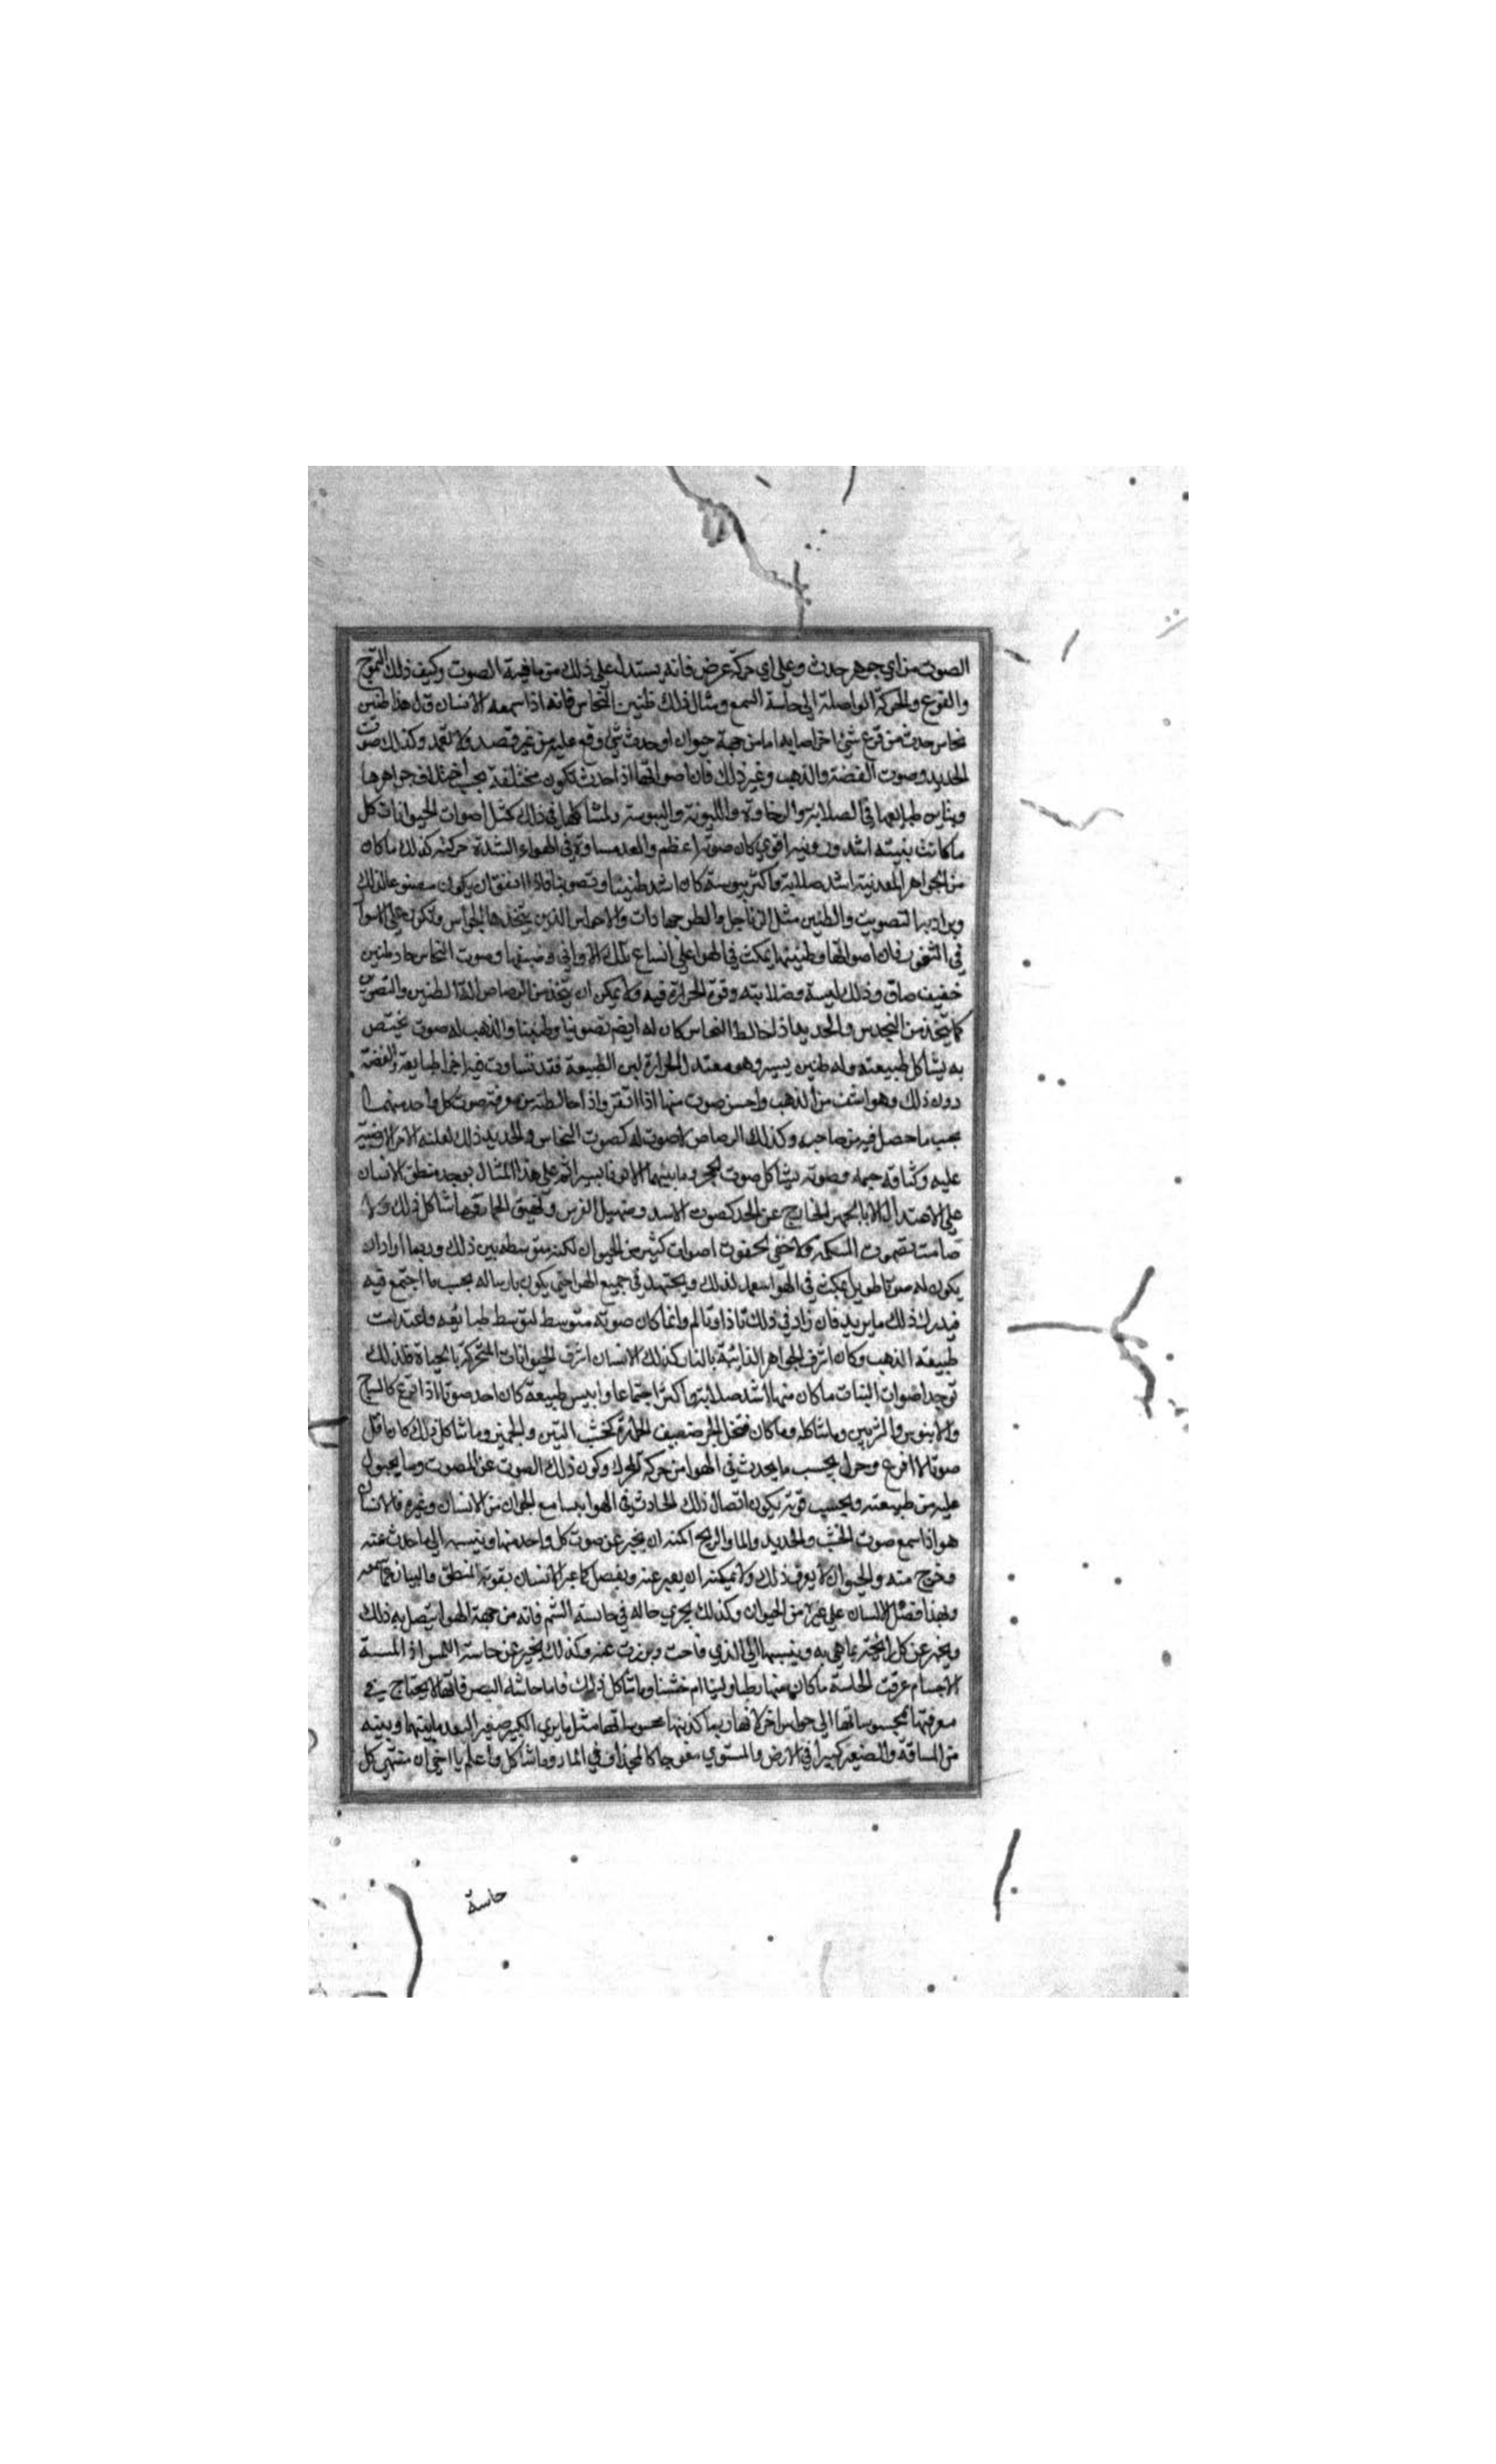 الصوت من اي جوهر حدث وعلى اي حركة عرض فانه يستدل على ذلك من ماهية الصوت وكيف ذلك التموج
والقرع والحركة الواصلة الى حاسة السمع ومثال ذلك طنين النحاس فانه اذا سمعه الانسان قال هذا طنين
نحاس حدث من قرع شئ اخر اصابه اما من جهة حيوان او حدث شئ وقع عليه من غير قصد ولا تعمد وكذلك صوت
الحديد وصوت الفضة والذهب وغير ذلك فان اصواتها اذا حدث تكون مختلفة بحسب اختلاف جواهرها
وتباين طبايعها في الصلابة والرخاوة والليونة واليبوسة ولمشاكلها في ذلك كمثل اصوات الحيوانات كل
ما كانت بنيته اشد وزنيره اقوي كان صوته اعظم وابعد مسافة في الهواء لشدة حركته كذلك ما كان
من الجواهر المعدنية اشد صلابة واكثر يبوسة كان اشد طنينا وتصويتا واذا اتفق ان يكون مصنوعا لذلك
ويراد به التصويت والطنين مثل الزناجل والطرجهارات والاجراس الذين يتخذها الحراس وتكون على الاسوار
في الثغور فان اصواتها وطنينها يمكث في الهوا على اتساع تلك الاواني وضيقها وصوت النحاس حاد وطنين
خفيف صاف وذلك ليبسه وصلابته وقوة الحرارة فيه ولا يمكن ان يتخذ من الرصاص الة الطنين والتصويت
كما يتخذ من النحاس والحديد اذا خالط النحاس كان له ايضا تصويتا وطنينا والذهب له صوت يختص
به يشاكل طبيعته وله طنين يسير وهو معتدل الحرارة لين الطبيعة فقد تساوت فيه اجزا طبايعه والفضة
دون ذلك وهو اشف من الذهب واحسن صوت منها اذا انقر واذا خالطته من معرفة صوت كل واحد منهما
بحسب ما حصل فيه من صاحبه وكذلك الرصاص لا صوت له كصوت النحاس والحديد ذلك لغلبة الاجزا الارضية
عليه وكثافة جسمه وصوته يشاكل صوت الحجر وما بينهما الا فرقا يسيرا ثم على هذا المثال يوجد منطق الانسان
على الاعتدال لا بالجهر الخارج عن الحد كصوت الاسد وصهيل الفرس ونهيق الحمار وما شاكل ذلك ولا
صامت كصموت السمكة ولا خفي كخفوت اصوات كثير من الحيوان لكنه متوسطه بين ذلك وربما اراد ان
يكون له صوتا طويل يمكث في الهوا سعد لذلك ويجتهد في جميع الهوا حتى يكون بارساله بحسب ما اجتمع فيه
فيدرك ذلك ما يريد فان زاد في ذلك تاذا وتالم وانما كان صوته متوسط لتوسط طبايعه واعتدلت
طبيعة الذهب وكان اشرف الجواهر الذائبة بالنار كذلك الانسان اشرف الحيوانات المتحركة بالحياة فلذلك
توجد اصوات النبات ما كان منها اشد صلابة واكثر اجتماعا وايبس طبيعة كان احد صوتا اذا قرع كالساج
والابنوس والشربين وما شاكله وما كان متخلخل الجرم ضعيف الحرارة كخشب التين والجميز وما شاكل ذلك كان اقل
صوتا اذا قرع وحرك بحسب ما يحدث في الهوا من حركة المحرك وكون ذلك الصوت عن المصوت وما يحبول
عليه من طبيعته وبحسب قوته يكون اتصال ذلك الحادث في الهوا بمسامع الحيوان من الانسان وغيره فالانسان
هو اذا سمع صوت الخشب والحديد والما والريح امكنه ان يخبر عن صوت كل واحد منها وينسبه الى ما حدث عنه
وخرج منه والحيوان لا يعرف ذلك ولا يمكنه ان يعبر عنه ويفصل كما عبر الانسان بقوة المنطق والبيان عما سمعه
ولهذا فضل الانسان على غيره من الحيوان وكذلك يجري حاله في حاسة الشم فانه من جهة الهوا يتصل به ذلك
ويخبر عن كل رائحة بما هي به وينسبها الى الذي فاحت وبرزت عنه وكذلك يخبر عن حاسة اللمس اذ المسة
الاجسام عرفت الحاسة ما كان منها رطبا ولينا ام خشنا وما شاكل ذلك فاما حاسة البصر فانها لا يحتاج في
معرفتها بمحسوساتها الى حواس اخر لانها ربما كذبتها محسوساتها مثل ما يري الكبير صغير البعد ما بينها وبينه
من المسافة والصغير كبيرا في الارض والمستوي معوجا كالمجذاف في الما وما شاكل واعلم يا اخي ان منتهى كل
حاسة